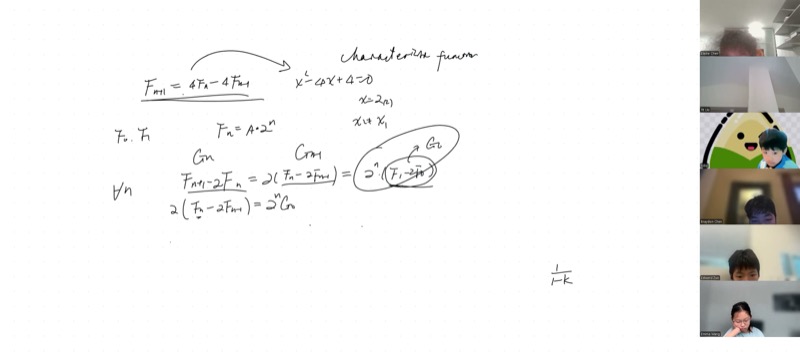 characteristic function
F_{n+1} = 4F_n - 4F_{n-1}
x^2 - 4x + 4 = 0
x = 2(2)
F_0. F_1
F_n = A·2^n
x_1 + x_1
G_n
G_{n-1}
G_0
∀n
F_{n+1} - 2F_n = 2(F_n - 2F_{n-1}) = 2^n (F_1 - 2F_0)
2(F_n - 2F_{n-1}) = 2^n G_0
1/1-k